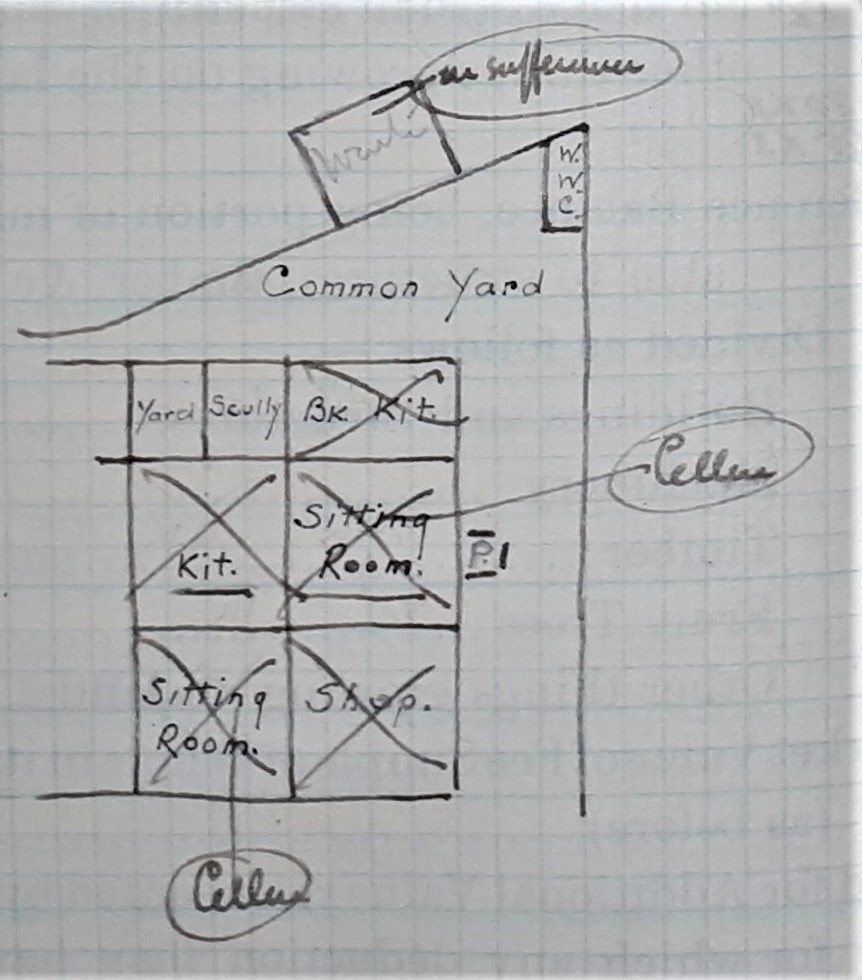 on sufference
W.
W.
C.
Common Yard
Yard
Scully
Bk. Kit.
Cellar
Sitting
Room.
Kit.
P.1
Sitting
Room.
Shop.
Cellar